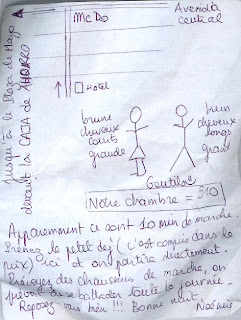 McDo
Avenida
central
jusqu'à la Plaza de Mayo
devant la CAJA de AHORRO
Hotel
brune
cheveux
courts
grande
brun
cheveux
longs
grand
Gentils!!
Notre chambre = 510
Apparemment ce sont 10 min de marche.
Prenez le petit dej (c'est compris dans le
prix) ici et on partira directement.
Prévoyez des chaussures de marche, on
prévoit de se ballader toute la journée.
Reposez-vous bien !!! Bonne nuit.
Noémie